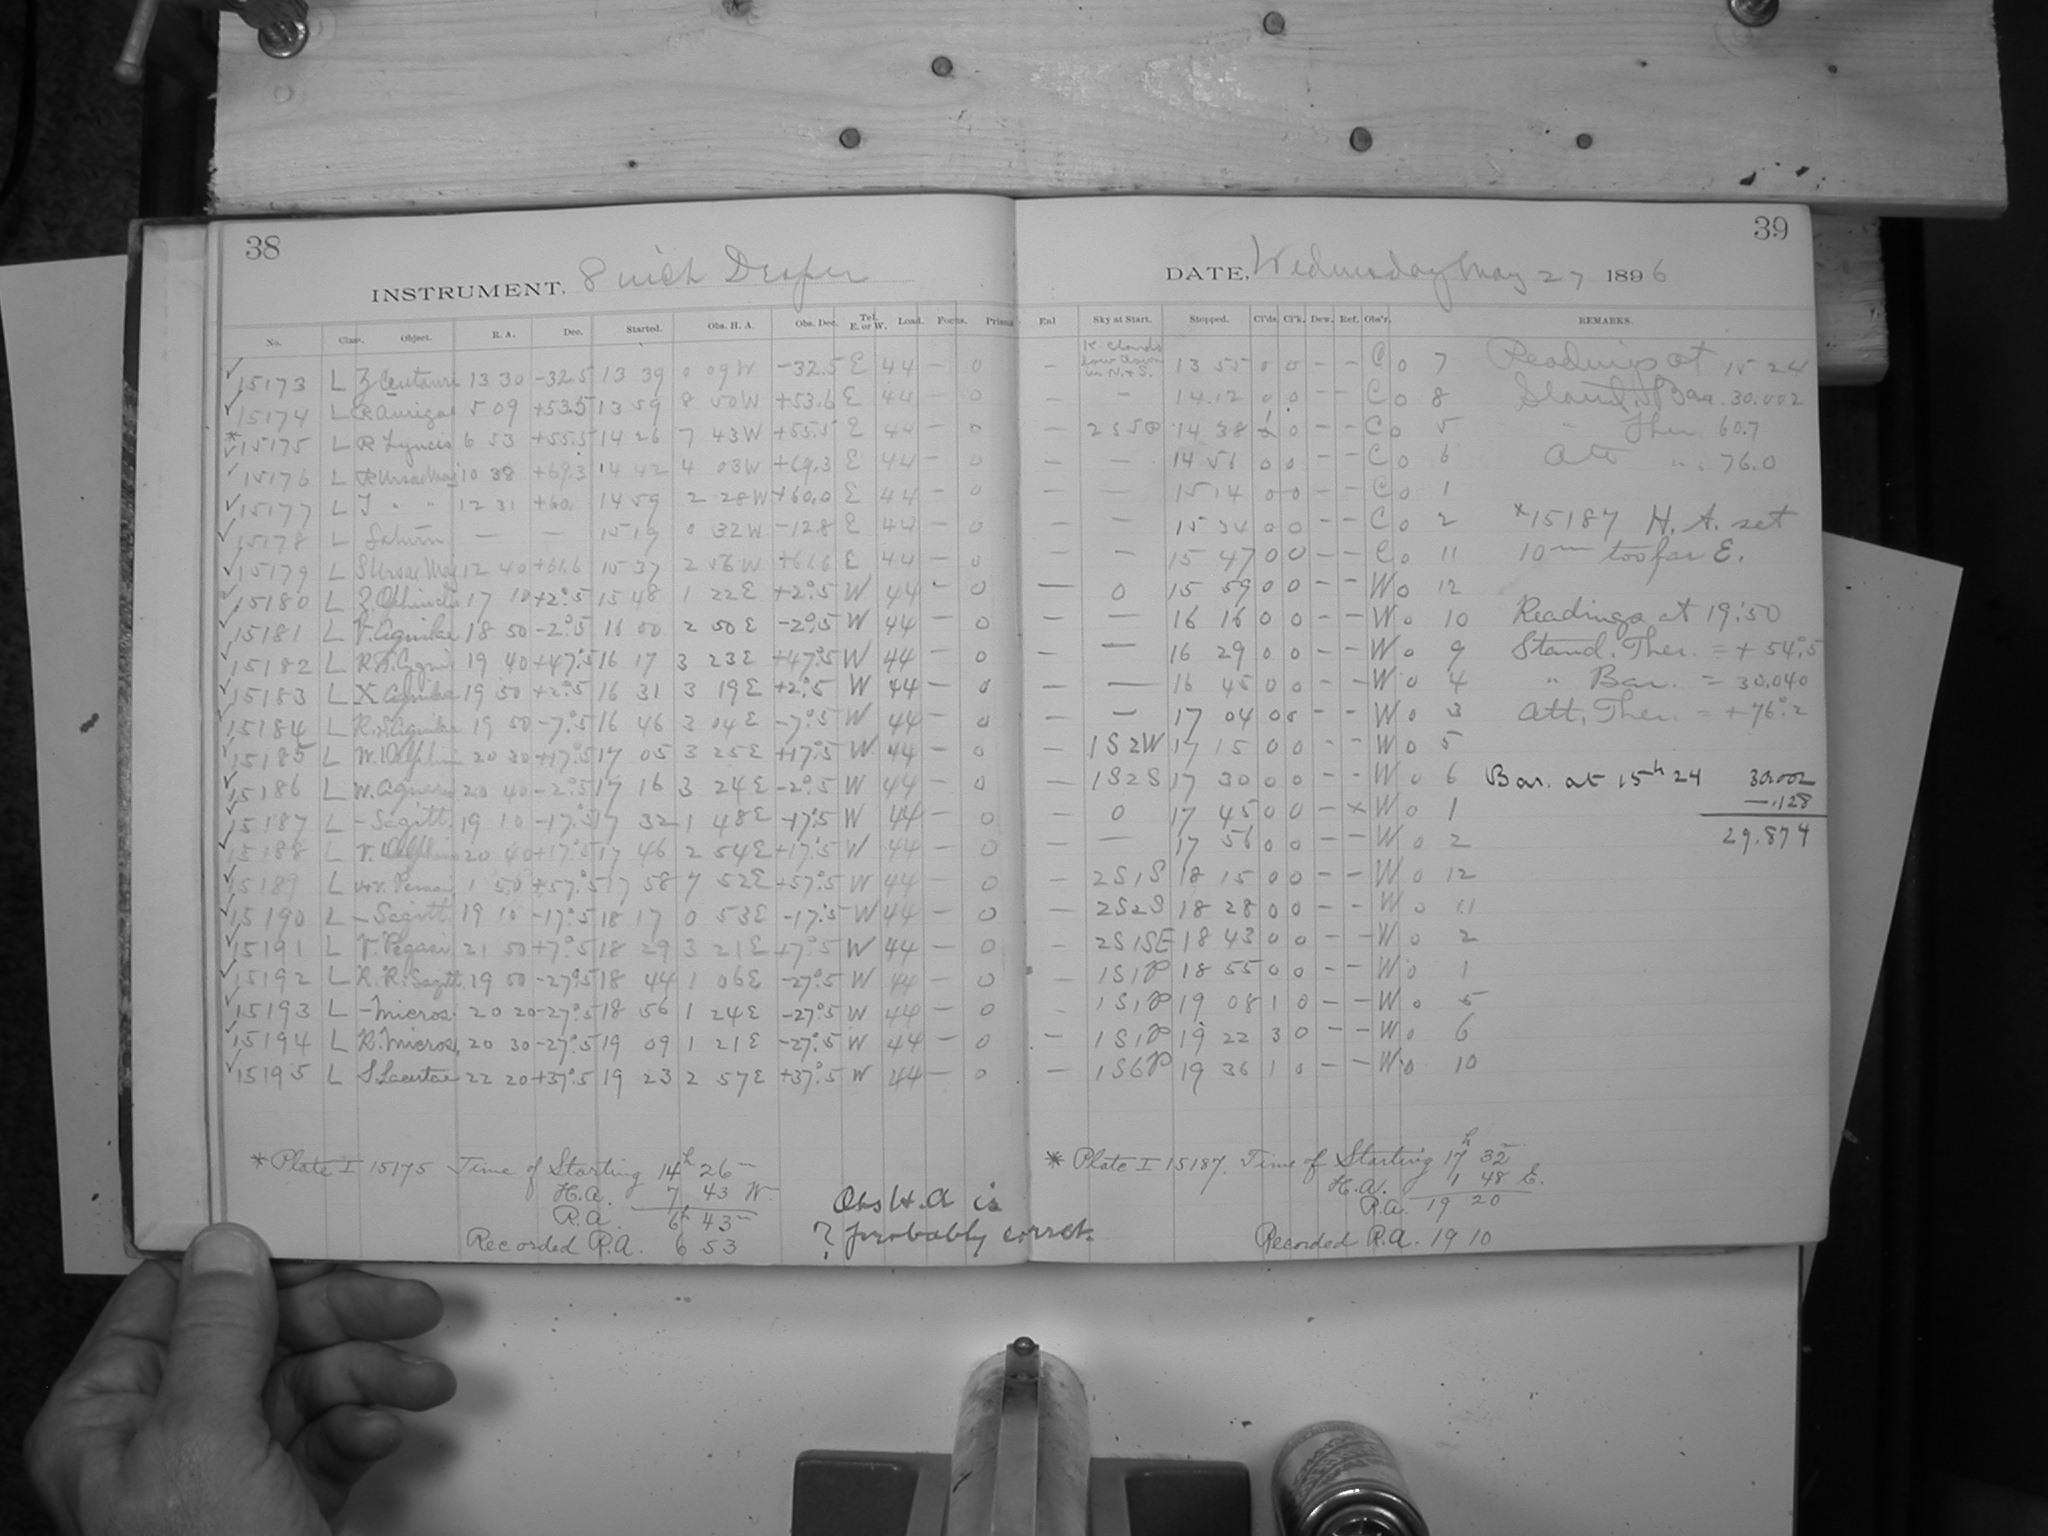 38
INSTRUMENT. 8 inch Draper
No. Class. Object. R. A. Dec. Started. Obs. H. A. Obs. Dec. Tel. E. or W. Load. Focus. Prisms
15173 L Z Centauri 13 30 -32.5 13 39 0 09W -32.5 E 44 — 0
15174 L R Aurigae 5 09 +53.5 13 59 8 50W +53.6 E 44 — 0
*15175 L R Lyncis 6 53 +55.5 14 26 7 43W +55.5 E 44 — 0
15176 L R Ursae Maj 10 38 +69.3 14 42 4 03W +69.3 E 44 — 0
15177 L T " " 12 31 +60. 14 59 2 28W +60.0 E 44 — 0
15178 L Saturn — — 15 19 0 32W -12.8 E 44 — 0
15179 L S Ursae Maj 12 40 +61.6 15 37 2 56W +61.6 E 44 — 0
15180 L Z. Ophiuchi 17 10 +2°.5 15 48 1 22E +2°.5 W 44 - 0
15181 L V. Aquilae 18 50 -2°.5 16 00 2 50E -2°.5 W 44 — 0
15182 L R.T. Cygni 19 40 +47°.5 16 17 3 23E +47°.5 W 44 — 0
15183 L X Aquilae 19 50 +2°.5 16 31 3 19E +2°.5 W 44 — 0
15184 L R.S. Aquilae 19 50 -7°.5 16 46 3 04E -7°.5 W 44 — 0
15185 L W. Delphini 20 30 +17°.5 17 05 3 25E +17°.5 W. 44 — 0
15186 L W. Aquarii 20 40 -2°.5 17 16 3 24E -2°.5 W 44 — 0
15187 L - Sagitt. 19 10 -17°.5 17 32 1 48E -17°.5 W 44 — 0
15188 L V. Delphini 20 40 +17°.5 17 46 2 54E +17°.5 W 44 — 0
15189 L Persei 1 50 +57°.5 17 58 7 52E +57°.5 W 44 — 0
15190 L - Sagitt. 19 10 -17°.5 18 17 0 53E -17°.5 W 44 — 0
15191 L V. Pegasi 21 50 +7°.5 18 29 3 21E +7°.5 W 44 — 0
15192 L R.R. Sagitt. 19 50 -27°.5 18 44 1 06E -27°.5 W 44 — 0
15193 L - Micros. 20 20 -27°.5 18 56 1 24E -27°.5 W 44 — 0
15194 L R. Micros. 20 30 -27°.5 19 09 1 21E -27°.5 W 44 — 0
15195 L S. Lacertae 22 20 +37°.5 19 23 2 57E +37°.5 W 44 — 0
* Plate I 15175 Time of Starting 14h 26m
H.A. 7 43 W.
R.A. 6h 43m
Recorded R.A. 6 53
Obs H.A is
? probably correct.
39
DATE, Wednesday May 27 1896
Enl Sky at Start. Stopped. Cl'ds. Cl'k. Dew. Ref. Obs'r. REMARKS.
— K. clouds low down in N. & S. 13 55 0 0 - - C 0 7
— - 14.12 0 0 - - C 0 8
— 2S5P 14 38 0 - - C 0 5
— — 14 56 0 0 - - C 0 6
— — 15 14 0 0 - - C 0 1
— — 15 34 0 0 - - C 0 2
— — 15 47 0 0 - - C 0 11
— 0 15 59 0 0 - - W 0 12
— — 16 16 0 0 - - W 0 10
— — 16 29 0 0 - - W 0 9
— — 16 45 0 0 - - W 0 4
— — 17 04 0 0 - - W 0 3
— 1S2W 17 15 0 0 - - W 0 5
— 1S2S 17 30 0 0 - - W 0 6
— 0 17 45 0 0 - x W 0 1
— — 17 56 0 0 - - W 0 2
— 2S1S 18 15 0 0 - - W 0 12
— 2S2S 18 28 0 0 - - W 0 11
— 2S1SE 18 43 0 0 - - W 0 2
— 1S1P 18 55 0 0 - - W 0 1
— 1S1P 19 08 1 0 - - W 0 5
— 1S1P 19 22 3 0 - - W 0 6
— 1S6P 19 36 1 0 - - W 0 10
Readings at 15 24
Stand. Bar. 30.002
" Ther. 60.7
Att " 76.0
*15187 H. A. set
10m too far E.
Readings at 19:50
Stand. Ther. = + 54°.5
" Bar. = 30.040
Att. Ther. = +76°.2
Bar. at 15h 24 30.002
—.128
29.874
* Plate I 15187. Time of Starting 17h 32m
H.A. 1 48 E.
R.A. 19 20
Recorded R.A. 19 10